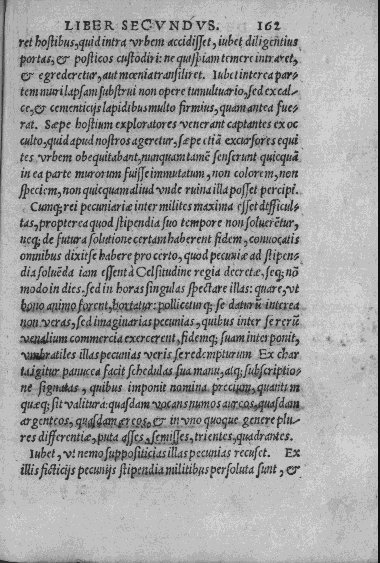 LIBER SECVNDVS. 162
ret hostibus, quid intra vrbem accidisset, iubet diligentius
portas, & posticos custodiri: ne quispiam temere intraret,
& egrederetur, aut mœnia transiliret. Iubet interea par=
tem muri lapsam substrui non opere tumultuario, sed ex cal=
ce, & cementicijs lapidibus multo firmius, quam antea fue=
rat. Sæpe hostium exploratores venerant captantes ex oc
culto, quid apud nostros ageretur, sæpe etiã excursores equi
tes vrbem obequitabant, nunquam tamẽ senserunt quicquã
in ea parte murorum fuisse immutatum, non colorem, non
speciem, non quicquam aliud vnde ruina illa posset percipi.
Cumq; rei pecuniariæ inter milites maxima esset difficul=
tas, propterea quod stipendia suo tempore non soluerẽtur,
neq; de futura solutione certam haberent fidem, conuocatis
omnibus dixit se habere pro certo, quod pecuniæ ad stipen=
dia soluẽda iam essent à Celsitudine regia decretæ, seq; nõ
modo in dies, sed in horas singulas spectare illas: quare, vt
bono animo forent, hortatur: pollicetur q; se daturũ interea
non veras, sed imaginarias pecunias, quibus inter se rerũ
venalium commercia exercerent, fidemq; suam interponit,
vmbratiles illas pecunias veris se redempturum Ex char
ta igitur panucea facit schedulas sua manu, atq; subscriptio=
ne signatas, quibus imponit nomina precium, quantum
quæq; sit valitura: quasdam vocans numos aureos, quasdam
argenteos, quasdam æreos, & in vno quoque genere plu=
res differentiæ, puta asses, semisses, trientes, quadrantes.
Iubet, vt nemo suppositicias illas pecunias recuset. Ex
illis ficticijs pecunijs stipendia militibus persoluta sunt, &